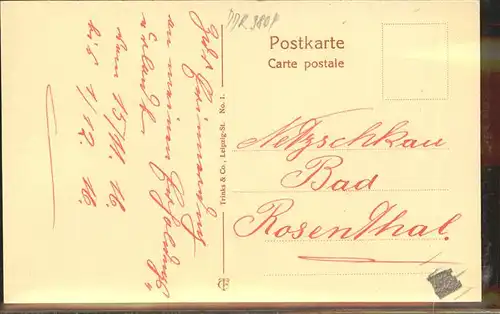 DDR 380 P
Postkarte
Carte postale
Trinks & Co., Leipzig-St. No. 1.
Netzschkau
Bad
Rosenthal.
Gute Erinnerung
an meinen Erholungs-
urlaub
vom 15/11. 16.
bis 1/12. 16.